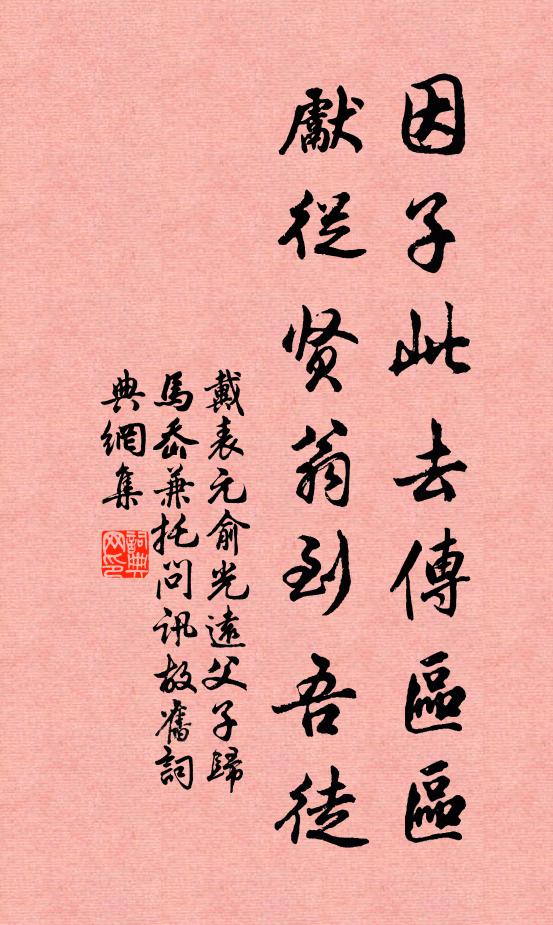 因子此去傳區區
獻從賢翁到吾徒
戴表元俞光遠父子歸
馬嶴兼托問訊故舊詞
典網集
詞典网印